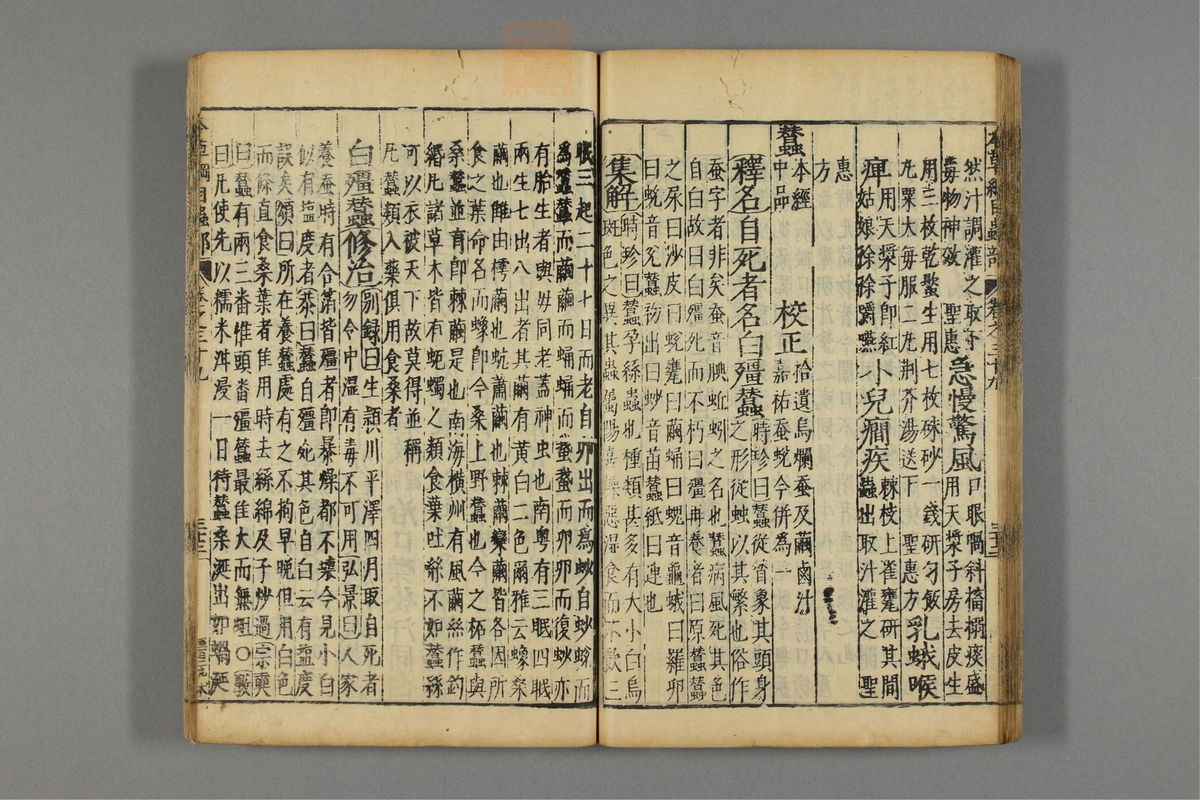 本草綱目蟲部 卷之三十九
然汁調灌之取
毒物神效 聖惠 急慢驚風 口眼喎斜搐搦痰盛
用三枚乾蠍生用七枚硃砂一錢研勻飯
丸粟大每服二丸荆芥湯送下 聖惠方 乳蛾喉
痺 用天漿子即紅姑娘徐徐嚼嚥 小兒癇疾 棘枝上雀甕研其間蟲出取汁灌之 聖
惠方
蠶 本經中品 校正 拾遺烏爛蠶及繭鹵汁嘉祐蠶蛻今併爲一
釋名 自死者名白殭蠶 時珍曰蠶從朁象其頭身之形從䖵以其繁也俗作
蚕字者非矣蚕音腆蚯蚓之名也蠶病風死其色
自白故曰白殭死而不朽曰殭再養者曰原蠶蠶
之屎曰沙皮曰蛻甕曰繭蛹曰螝音龜蛾曰羅卵
曰蛻音允蠶初出曰䖢音苗蠶紙曰連也
集解 時珍曰蠶孕絲蟲也種類甚多有大小白烏斑色之異其蟲屬陽喜燥惡濕食而不飲三
眠三起二十七日而老自卵出而爲䖢自䖢蛻而
爲蠶蠶而繭繭而蛹蛹而蛾蛾而卵卵而復䖢亦
有胎生者與毋同老蓋神虫也南粤有三眠四眠
兩生七出八出者其繭有黄白二色爾雅云蟓桑
繭也雔由樗繭也蚢蕭繭也棘繭欒繭皆各因所
食之葉命名而蟓即今桑上野蠶也今之柘蠶與
桑蠶並育即棘繭是也南海横州有風繭絲作釣
緡凡諸草木皆有蚅蠋之類食葉吐絲不如蠶絲
可以衣被天下故莫得並稱
凡蠶類入藥俱用食桑者
白殭蠶修治 别録曰生潁川平澤四月取自死者勿令中濕有毒不可用弘景曰人家
養蚕時有合箔皆殭者即暴燥都不壞今見小白
似有鹽度者恭曰蠶自殭死其色自白云有鹽度
誤矣頌曰所在養蠶處有之不拘早晚但用白色
而條直食桑葉者佳用時去絲綿及子炒過宗奭
曰蠶有兩三番惟頭番殭蠶最佳大而無蛆○斅
曰凡使先以糯米泔浸一日待蠶桑涎出如蝸涎